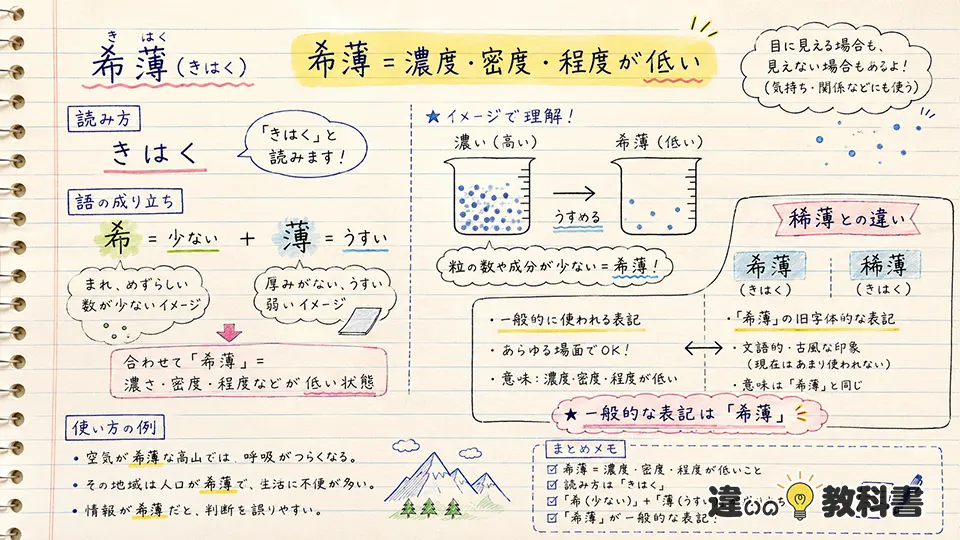 きはく
希薄(きはく)
希薄=濃度・密度・程度が低い
目に見える場合も、
見えない場合もあるよ!
(気持ち・関係などにも使う)
読み方
きはく
「きはく」と
読みます!
語の成り立ち
希=少ない+薄=うすい
まれ、めずらしい
数が少ないイメージ
厚みがない、うすい
弱いイメージ
合わせて「希薄」=
濃さ・密度・程度などが低い状態
★イメージで理解!
濃い(高い)
希薄(低い)
うすめる
粒の数や成分が少ない=希薄!
稀薄との違い
希薄
(きはく)
稀薄
(きはく)
・一般的に使われる表記
・あらゆる場面でOK!
・意味:濃度・密度・程度が低い
・「希薄」の旧字体的な表記
・文語的・古風な印象
(現在はあまり使われない)
・意味は「希薄」と同じ
★一般的な表記は「希薄」
使い方の例
・空気が希薄な高山では、呼吸がつらくなる。
・その地域は人口が希薄で、生活に不便が多い。
・情報が希薄だと、判断を誤りやすい。
まとめメモ
希薄=濃度・密度・程度が低いこと
読み方は「きはく」
「希(少ない)」+「薄(うす
「希薄」が一般的な表記!
違いの教科書